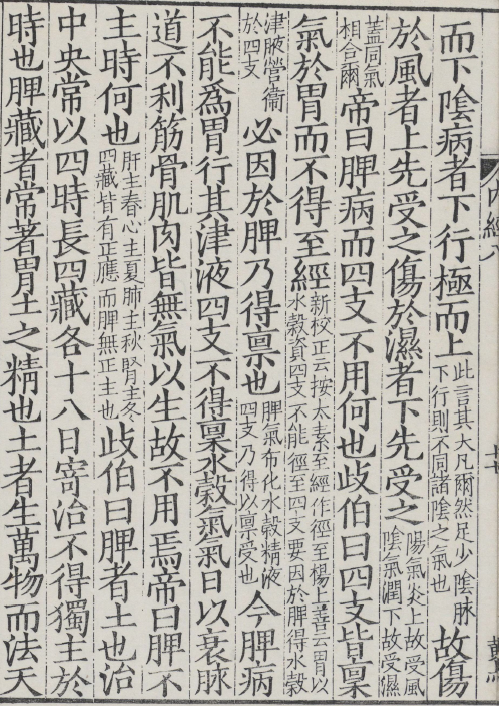 内經八
而下隂病者下行極而上此言其大凡爾然足少隂脉下行則不同諸隂之氣也故傷
於風者上先受之傷於濕者下先受之陽氣炎上故受風隂氣潤下故受濕
蓋同氣相合爾帝曰脾病而四支不用何也歧伯曰四支皆稟
氣於胃而不得至經新校正云按太素至經作徑至楊上善云胃以水穀資四支不能徑至四支要因於脾得水穀
津液營衞於四支必因於脾乃得禀也脾氣布化水穀精液四支乃得以禀受也今脾病
不能爲胃行其津液四支不得稟水穀氣氣日以衰脉
道不利筋骨肌肉皆無氣以生故不用焉帝曰脾不
主時何也肝主春心主夏肺主秋腎主冬四藏皆有正應而脾無正主也歧伯曰脾者土也治
中央常以四時長四藏各十八日寄治不得獨主於
時也脾藏者常著胃土之精也土者生萬物而法天